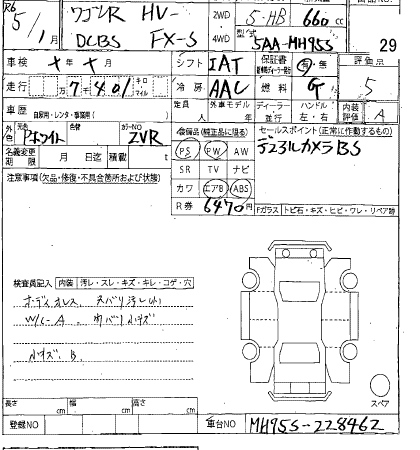 R6
5/1月 ワゴンR HV- 2WD 5-HB 660cc
DCBS FX-S 4WD 型式 5AA-MH95S 29
車検 年 月 シフト IAT 保証書 有・無 評価品
走行 万7千401 キロ マイル 冷房 AAC 燃料 G 5
車歴 自家用・レンタ・事業用( ) 定員 人 外車モデル 年 ディーラー 並行 ハンドル 左・右 内装評価 A
外色 Pホワイト 色替 カラーNO ZVR 装備品(純正品に限る) セールスポイント(正常に作動するもの)
名義変更期限 月 日迄 積載 t PS PW AW デジタルカメラBS
注意事項(欠品・修復・不具合箇所および状態) SR TV ナビ
カワ エアB ABS
R券 6470円 Fガラス トビ石・キズ・ヒビ・ワレ・リペア跡
検査員記入 内装 汚レ・スレ・キズ・キレ・コゲ・穴
オーディオレス
W/C-A
小キズ、B
長さ cm 幅 cm 高さ cm スペア
登録NO 車台NO MH95S-228462